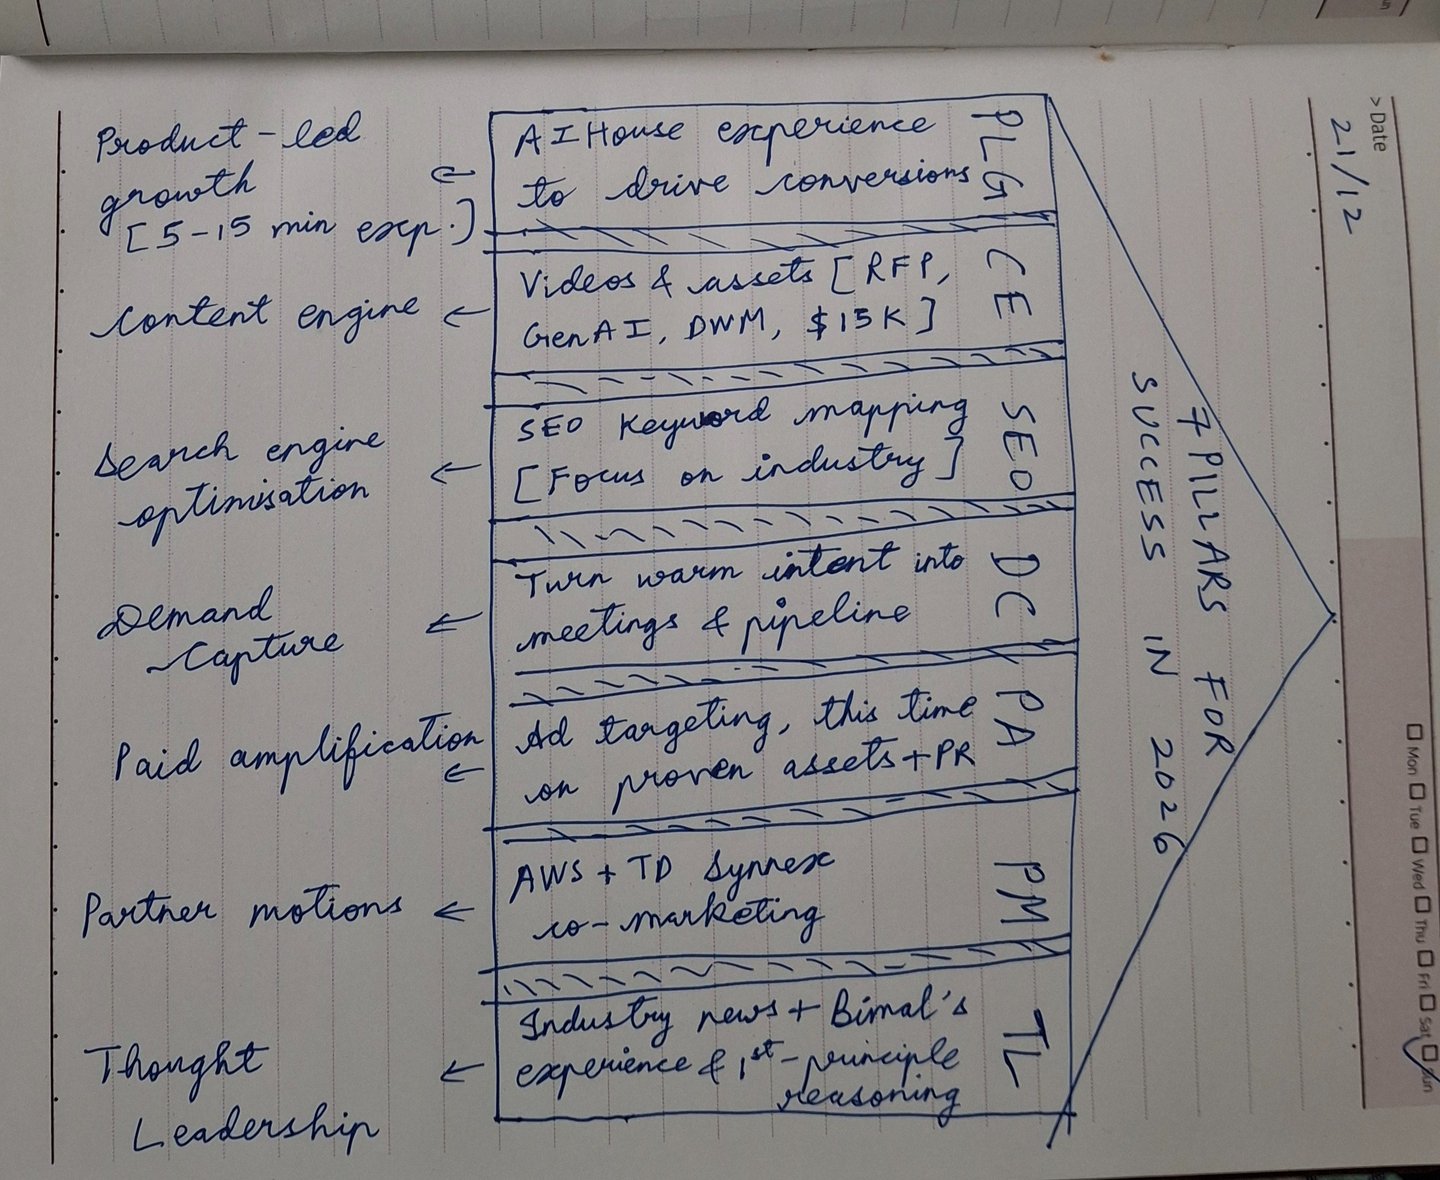 > Date
21/12
Mon Tue Wed Thu Fri Sat Sun
7 PILLARS FOR
SUCCESS IN 2026
Product-led
growth
[5-15 min exp.]
AI House experience
to drive conversions
PLG
Content engine
Videos & assets [RFP,
GenAI, DWM, $15K]
CE
Search engine
optimisation
SEO Keyword mapping
[Focus on industry]
SEO
Demand
Capture
Turn warm intent into
meetings & pipeline
DC
Paid amplification
Ad targeting, this time
on proven assets+PR
PA
Partner motions
AWS + TD Synnex
co-marketing
PM
Thought
Leadership
Industry news + Bimal's
experience & 1st-principle
reasoning
TL